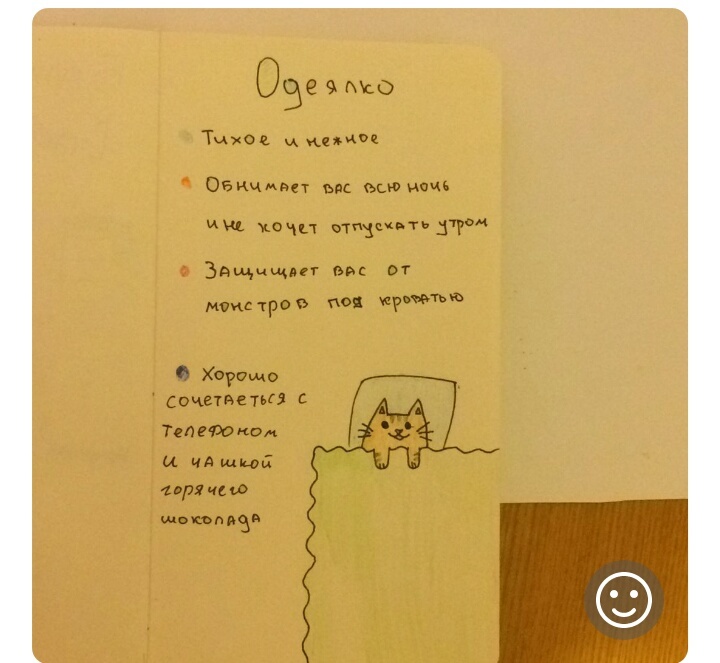 Одеялко
Тихое и нежное
Обнимает вас всю ночь
и не хочет отпускать утром
Защищает вас от
монстров под кроватью
Хорошо
сочетаеться с
телефоном
и чашкой
горячего
шоколада